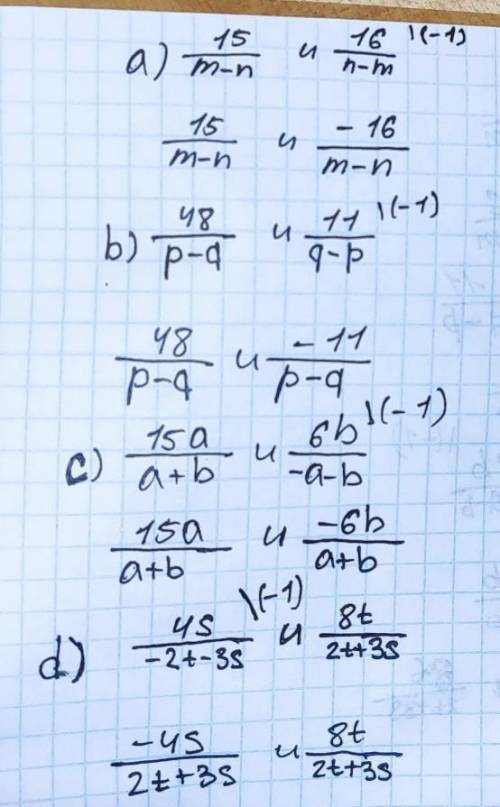 a) 15/(m-n) и 16/(n-m) \(-1)
15/(m-n) и -16/(m-n)
b) 48/(p-q) и 11/(q-p) \(-1)
48/(p-q) и -11/(p-q)
c) 15a/(a+b) и 6b/(-a-b) \(-1)
15a/(a+b) и -6b/(a+b)
d) 4s/(-2t-3s) \(-1) и 8t/(2t+3s)
-4s/(2t+3s) и 8t/(2t+3s)